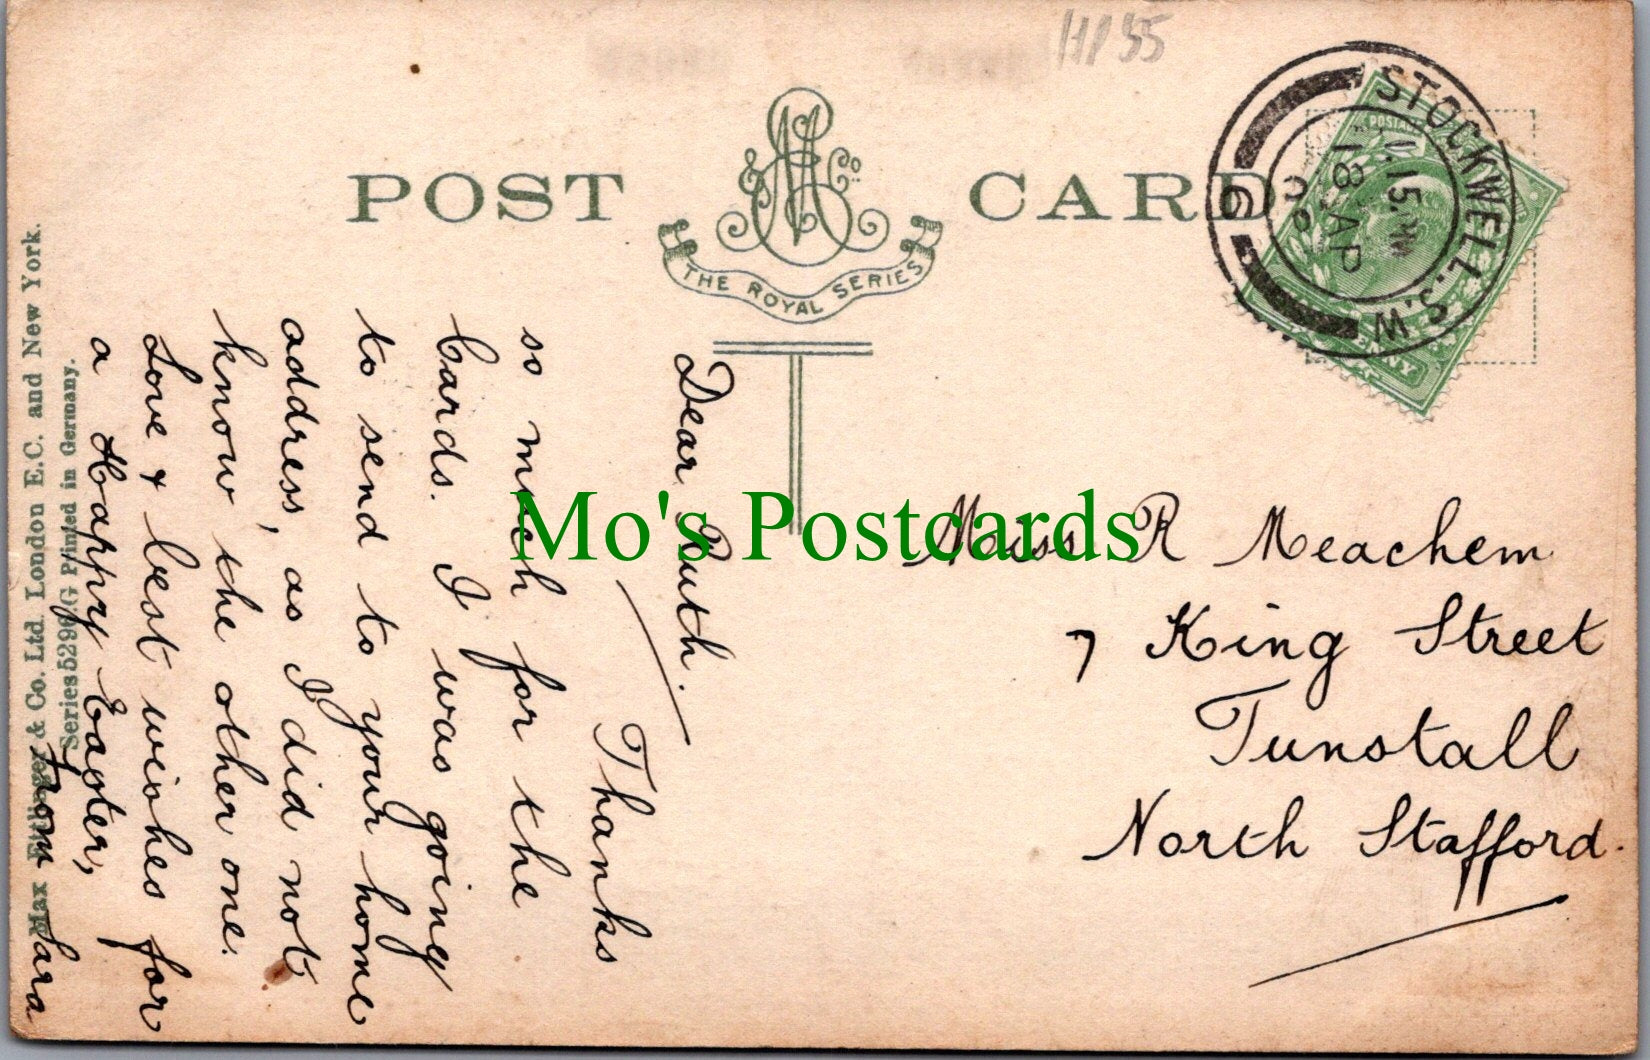 HP35
POST CARD
M E & Co.
THE ROYAL SERIES
STOCKWELL. S.W.
15. PM
18 AP
6
POSTAGE
PENNY
Dear Ruth.
Thanks
so much for the
Cards. I was going
to send to your home
address, as I did not
know the other one.
Love & best wishes for
a Happy Easter,
From Lara
Max Ettlinger & Co. Ltd. London E.C. and New York.
Printed in Germany.
Miss R Meachem
7 King Street
Tunstall
North Stafford.
Mo's Postcards